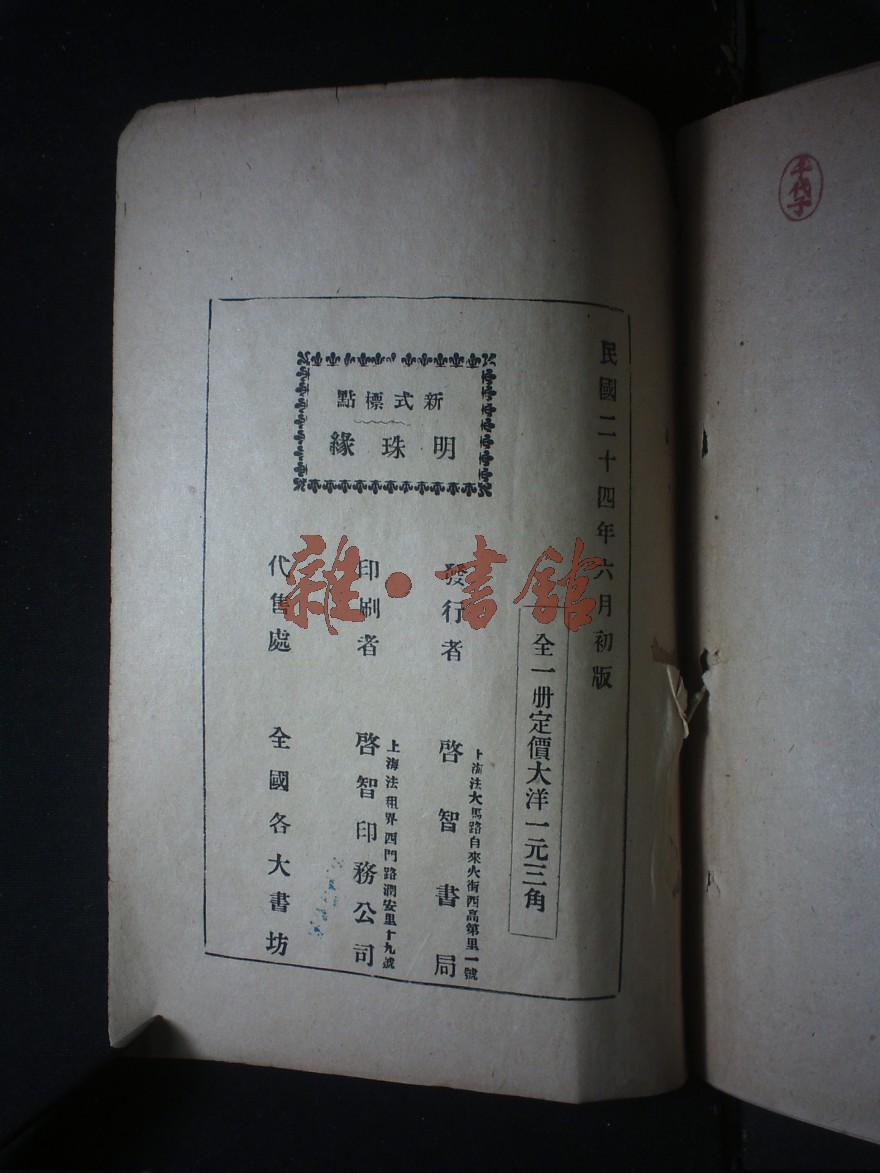 千代子
民國二十四年六月初版
全一册定價大洋一元三角
新式標點
明珠緣
發行者
上海法大馬路自來火街西高第里一號
啓智書局
印刷者
上海法租界西門路潤安里十九號
啓智印務公司
代售處
全國各大書坊
雜·書館